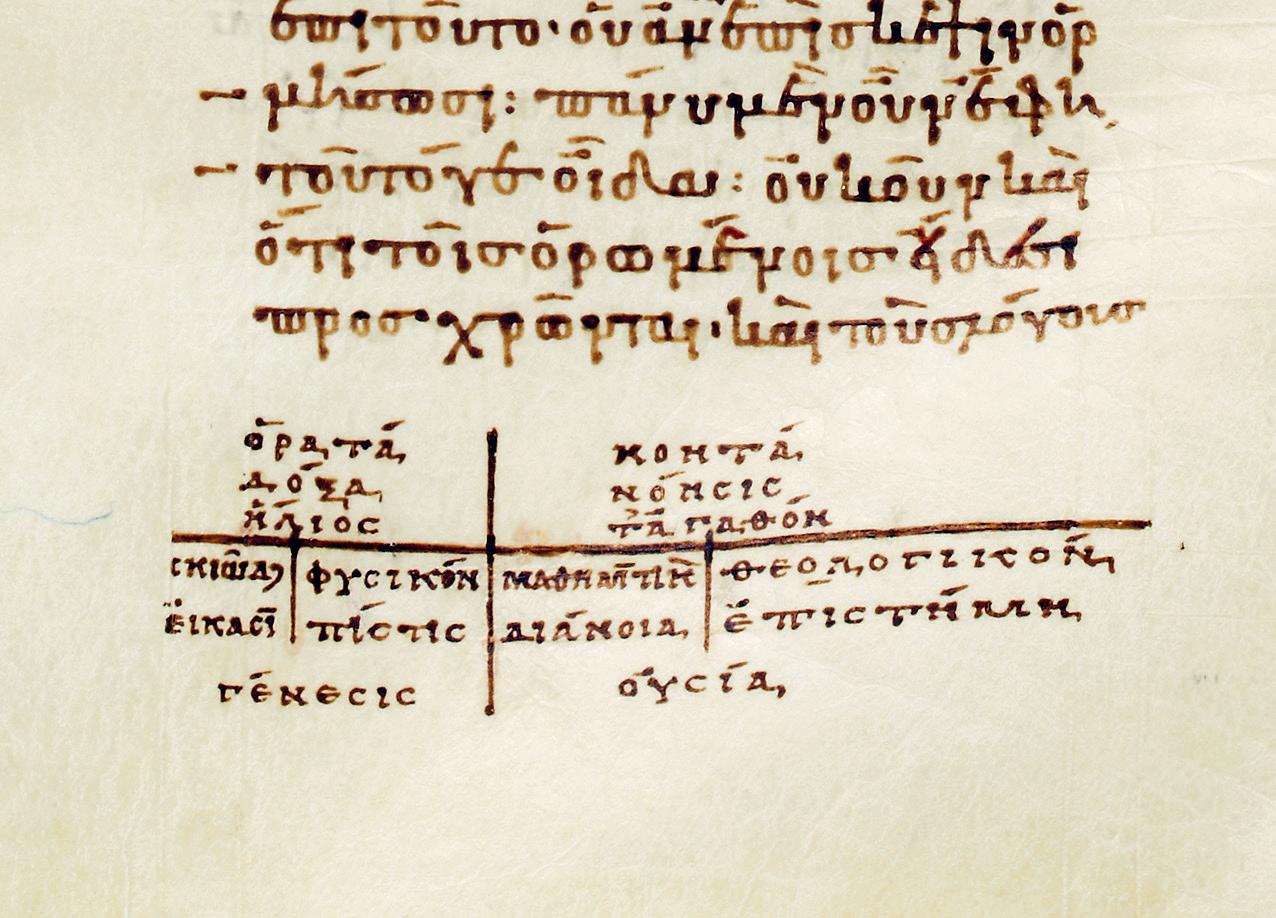 ἐπὶ τοῦτο· οὗ ἂν ἐπὶ σκέψιν ὁρ
μήσωσι: πάνυ μὲν οὖν ἔφη,
τοῦτό γε οἶδα: οὐκοῦν καὶ
ὅτι τοῖς ὁρωμένοις εἴδεσι
προσχρῶνται· καὶ τοὺς λόγους
ὁρατά
δόξα
ἥλιος
νοητά
νόησις
τἀγαθόν
φυσικόν
μαθηματικ
θεολογικόν
εἰκασί
πίστις
διάνοια
ἐπιστήμη
γένεσις
οὐσία